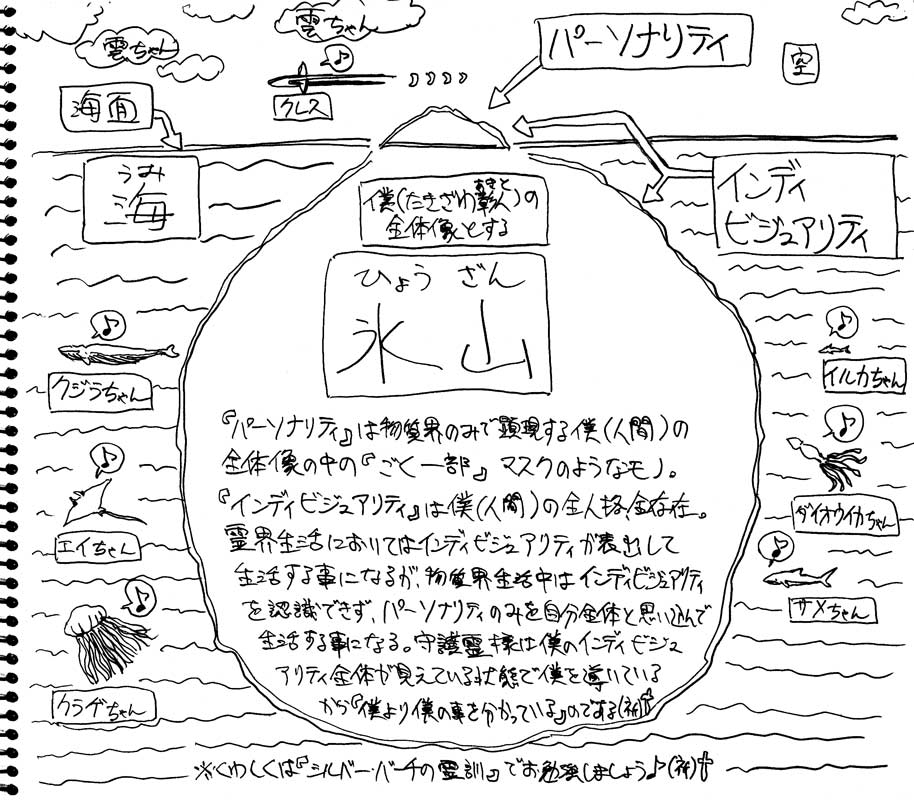 雲ちゃん
雲ちゃん
♪
クレス
パーソナリティ
空
海面
うみ
海
インディ
ビジュアリティ
僕(たきざわ彰人)の
あきと
全体像とする
ひょうざん
氷山
♪
クジラちゃん
♪
エイちゃん
♪
クラゲちゃん
♪
イルカちゃん
♪
ダイオウイカちゃん
♪
サメちゃん
『パーソナリティ』は物質界のみで顕現する僕(人間)の
全体像の中の『ごく一部』マスクのようなモノ。
『インディビジュアリティ』は僕(人間)の全人格、全存在。
霊界生活においてはインディビジュアリティが表出して
生活する事になるが、物質界生活中はインディビジュアリティ
を認識できず、パーソナリティのみを自分全体と思い込んで
生活する事になる。守護霊様は僕のインディビジュ
アリティ全体が見えている状態で僕を導いている
から『僕より僕の事を分かっている』のでする(祈)
※くわしくは『シルバーバーチの霊訓』でお勉強しましょう♪(祈)